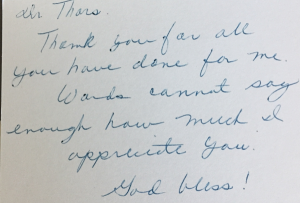 Thank you for all
you have done for me.
Words cannot say
enough how much I
appreciate you.
God bless!